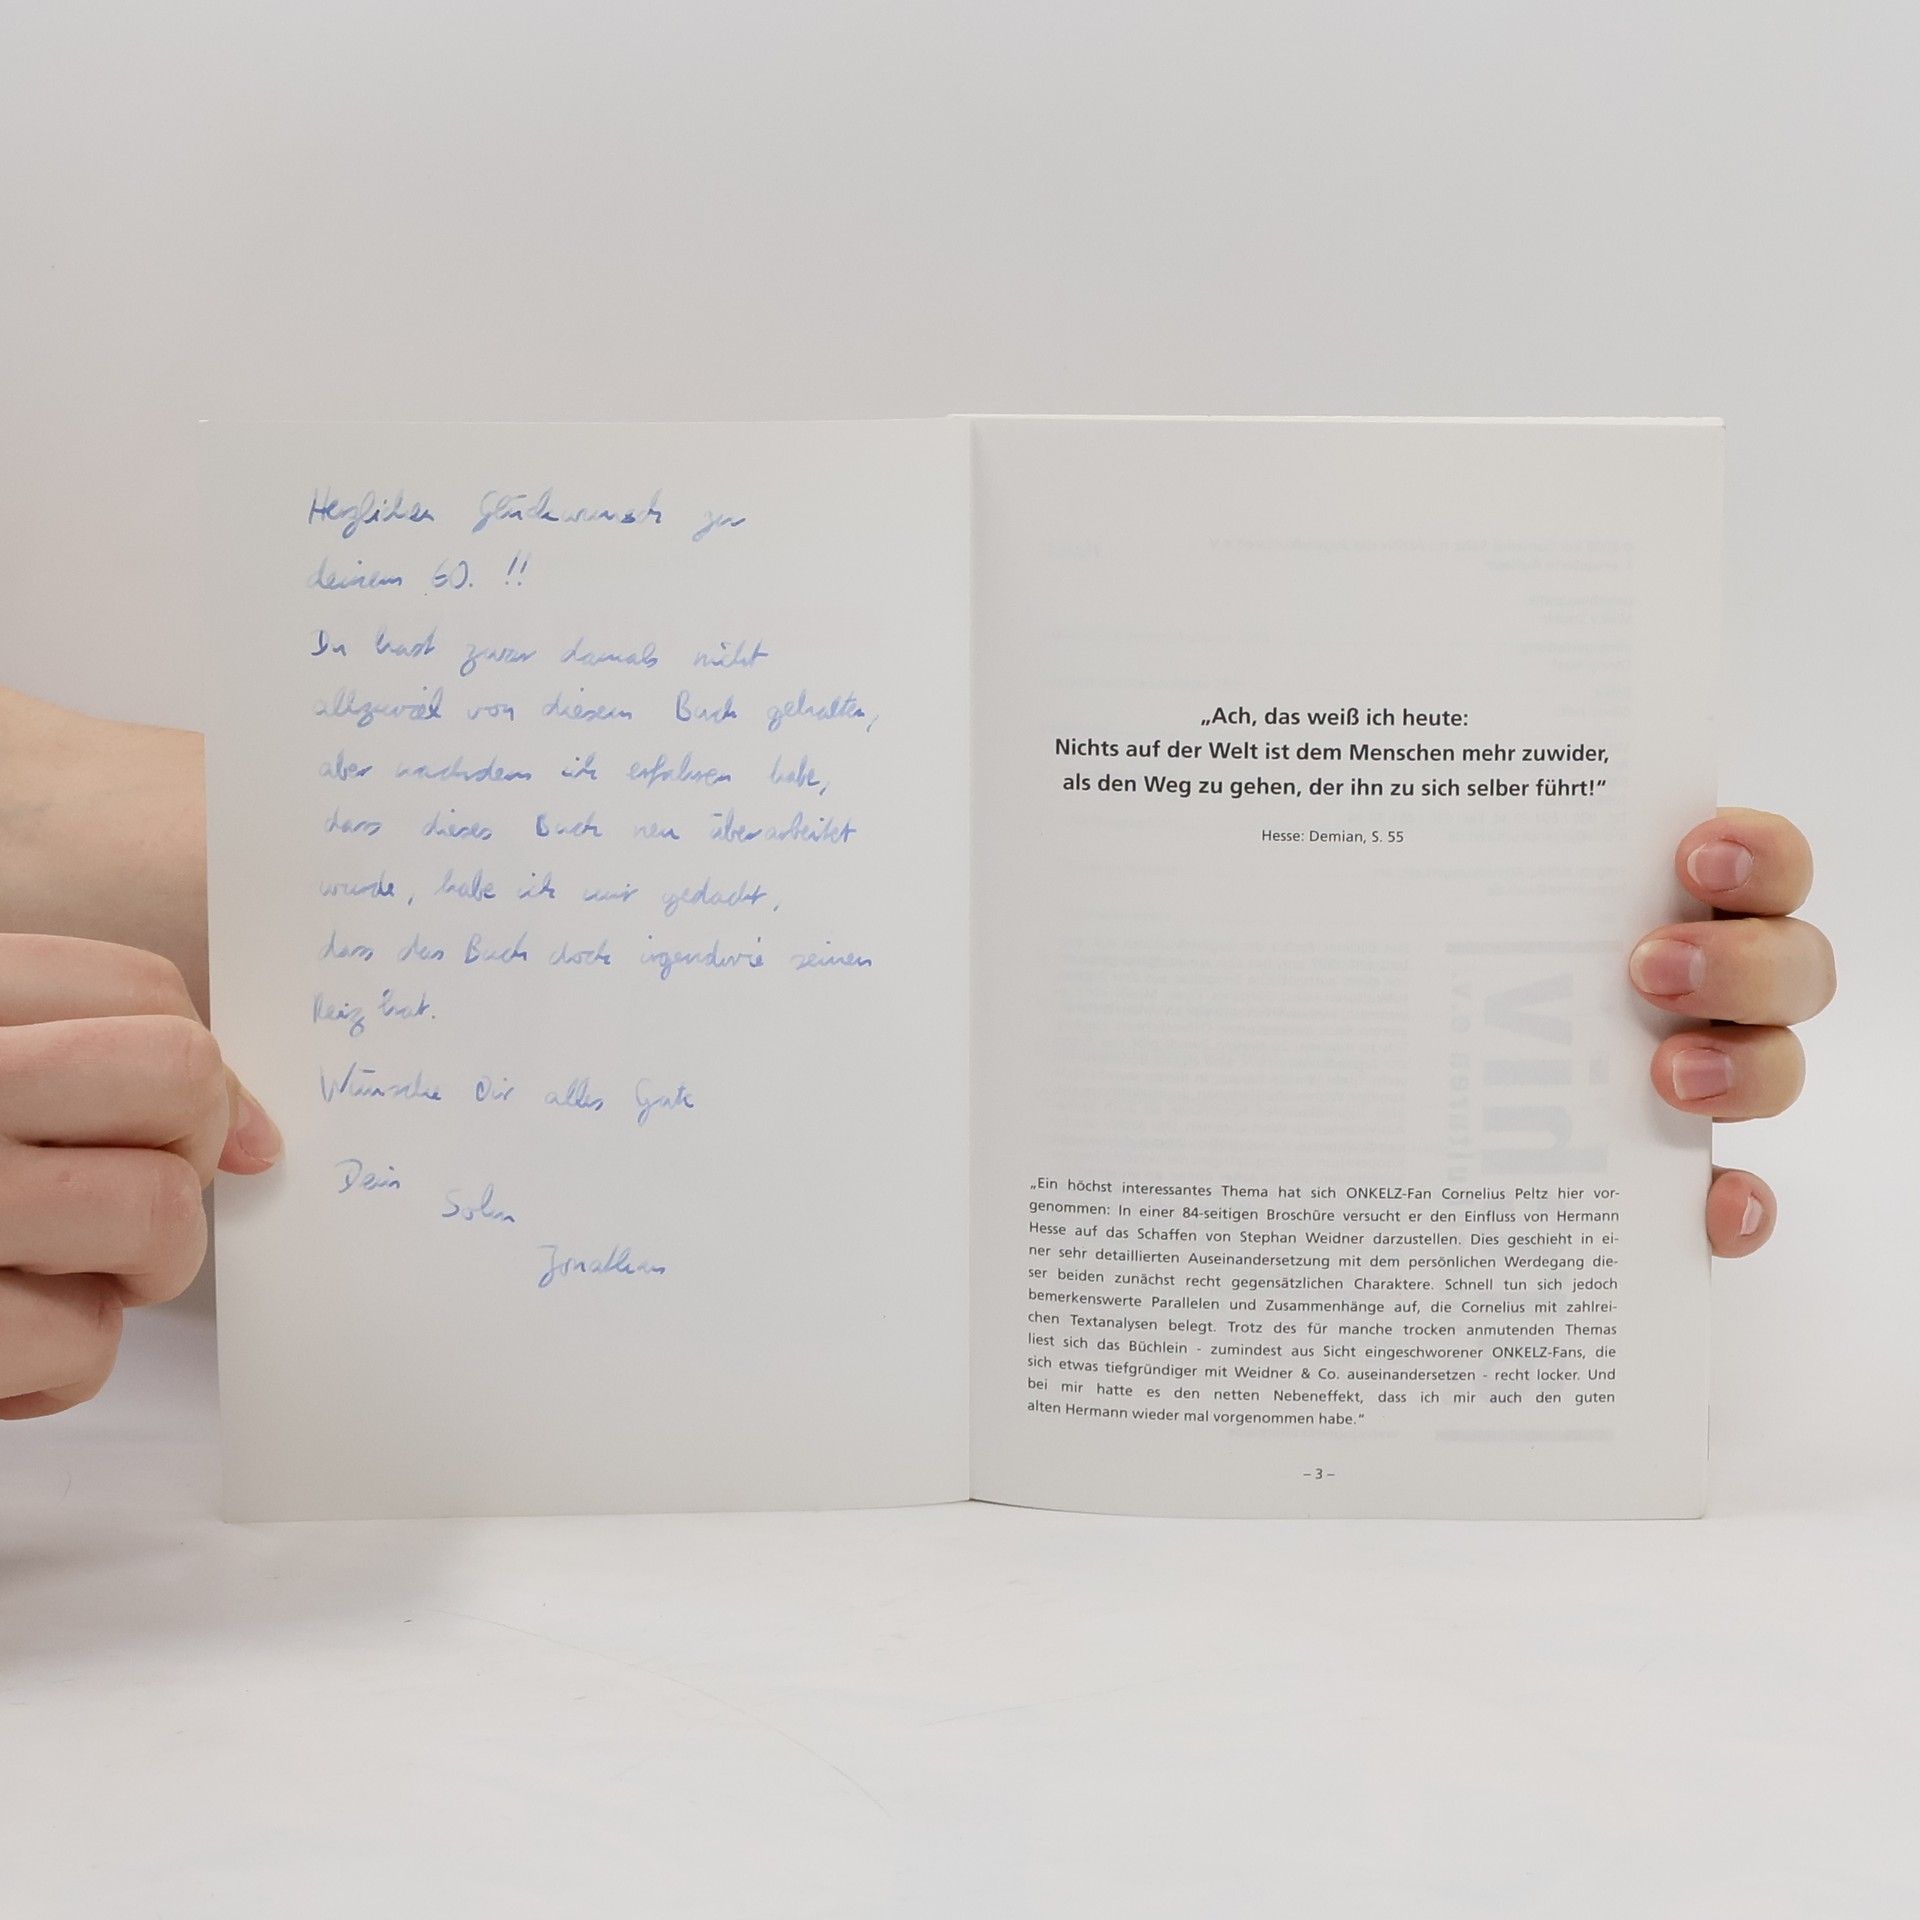 Herzlichen Glückwunsch zu
deinem 60. !!
Du hast zwar damals nicht
allzuviel von diesem Buch gehalten,
aber nachdem ich erfahren habe,
dass dieses Buch neu überarbeitet
wurde, habe ich mir gedacht,
dass das Buch doch irgendwie seinen
Reiz hat.
Wünsche Dir alles Gute
Dein
Sohn
Jonathan
„Ach, das weiß ich heute:
Nichts auf der Welt ist dem Menschen mehr zuwider,
als den Weg zu gehen, der ihn zu sich selber führt!“
Hesse: Demian, S. 55
„Ein höchst interessantes Thema hat sich ONKELZ-Fan Cornelius Peltz hier vor-
genommen: In einer 84-seitigen Broschüre versucht er den Einfluss von Hermann
Hesse auf das Schaffen von Stephan Weidner darzustellen. Dies geschieht in ei-
ner sehr detaillierten Auseinandersetzung mit dem persönlichen Werdegang die-
ser beiden zunächst recht gegensätzlichen Charaktere. Schnell tun sich jedoch
bemerkenswerte Parallelen und Zusammenhänge auf, die Cornelius mit zahlrei-
chen Textanalysen belegt. Trotz des für manche trocken anmutenden Themas
liest sich das Büchlein - zumindest aus Sicht eingeschworener ONKELZ-Fans, die
sich etwas tiefgründiger mit Weidner & Co. auseinandersetzen - recht locker. Und
bei mir hatte es den netten Nebeneffekt, dass ich mir auch den guten
alten Hermann wieder mal vorgenommen habe.“
– 3 –